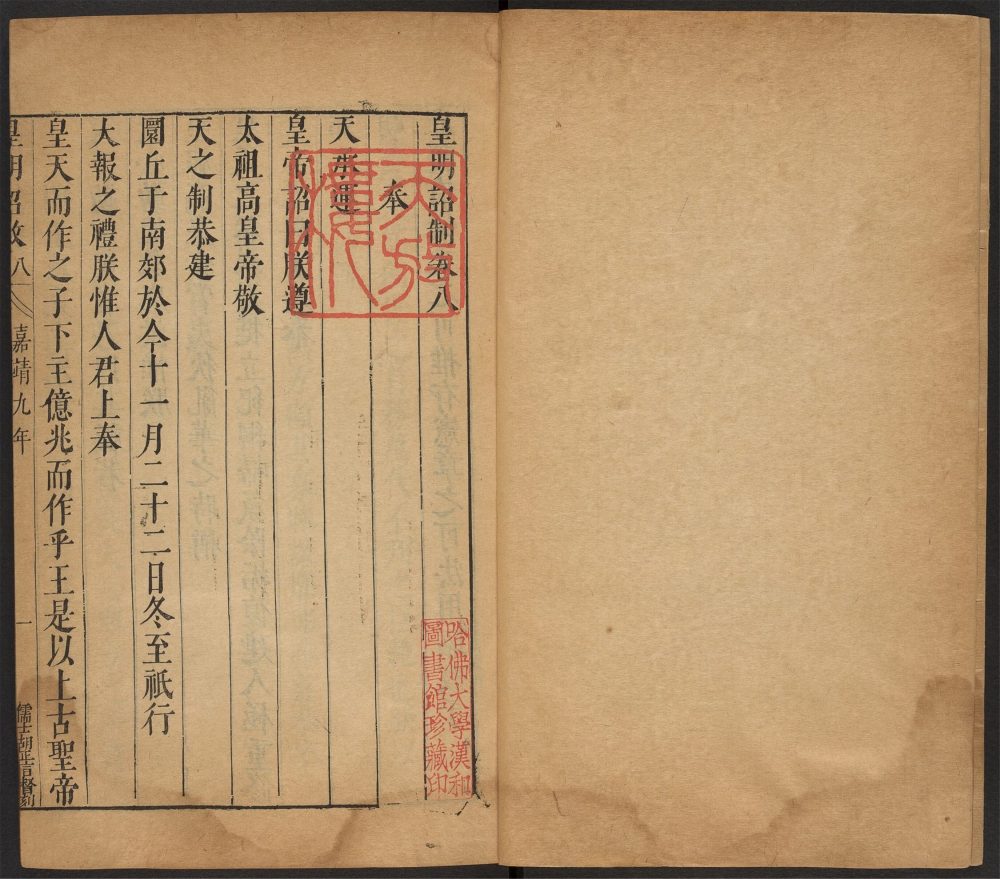 皇明詔制卷八
奉
天承運
皇帝詔曰朕遵
太祖高皇帝敬
天之制恭建
圜丘于南郊於今十一月二十二日冬至祇行
大報之禮朕惟人君上奉
皇天而作之子下主億兆而作乎王是以上古聖帝
皇明詔制 八 嘉靖九年 一 儒士胡正言督刻
天放樓
哈佛大學漢和
圖書館珍藏印